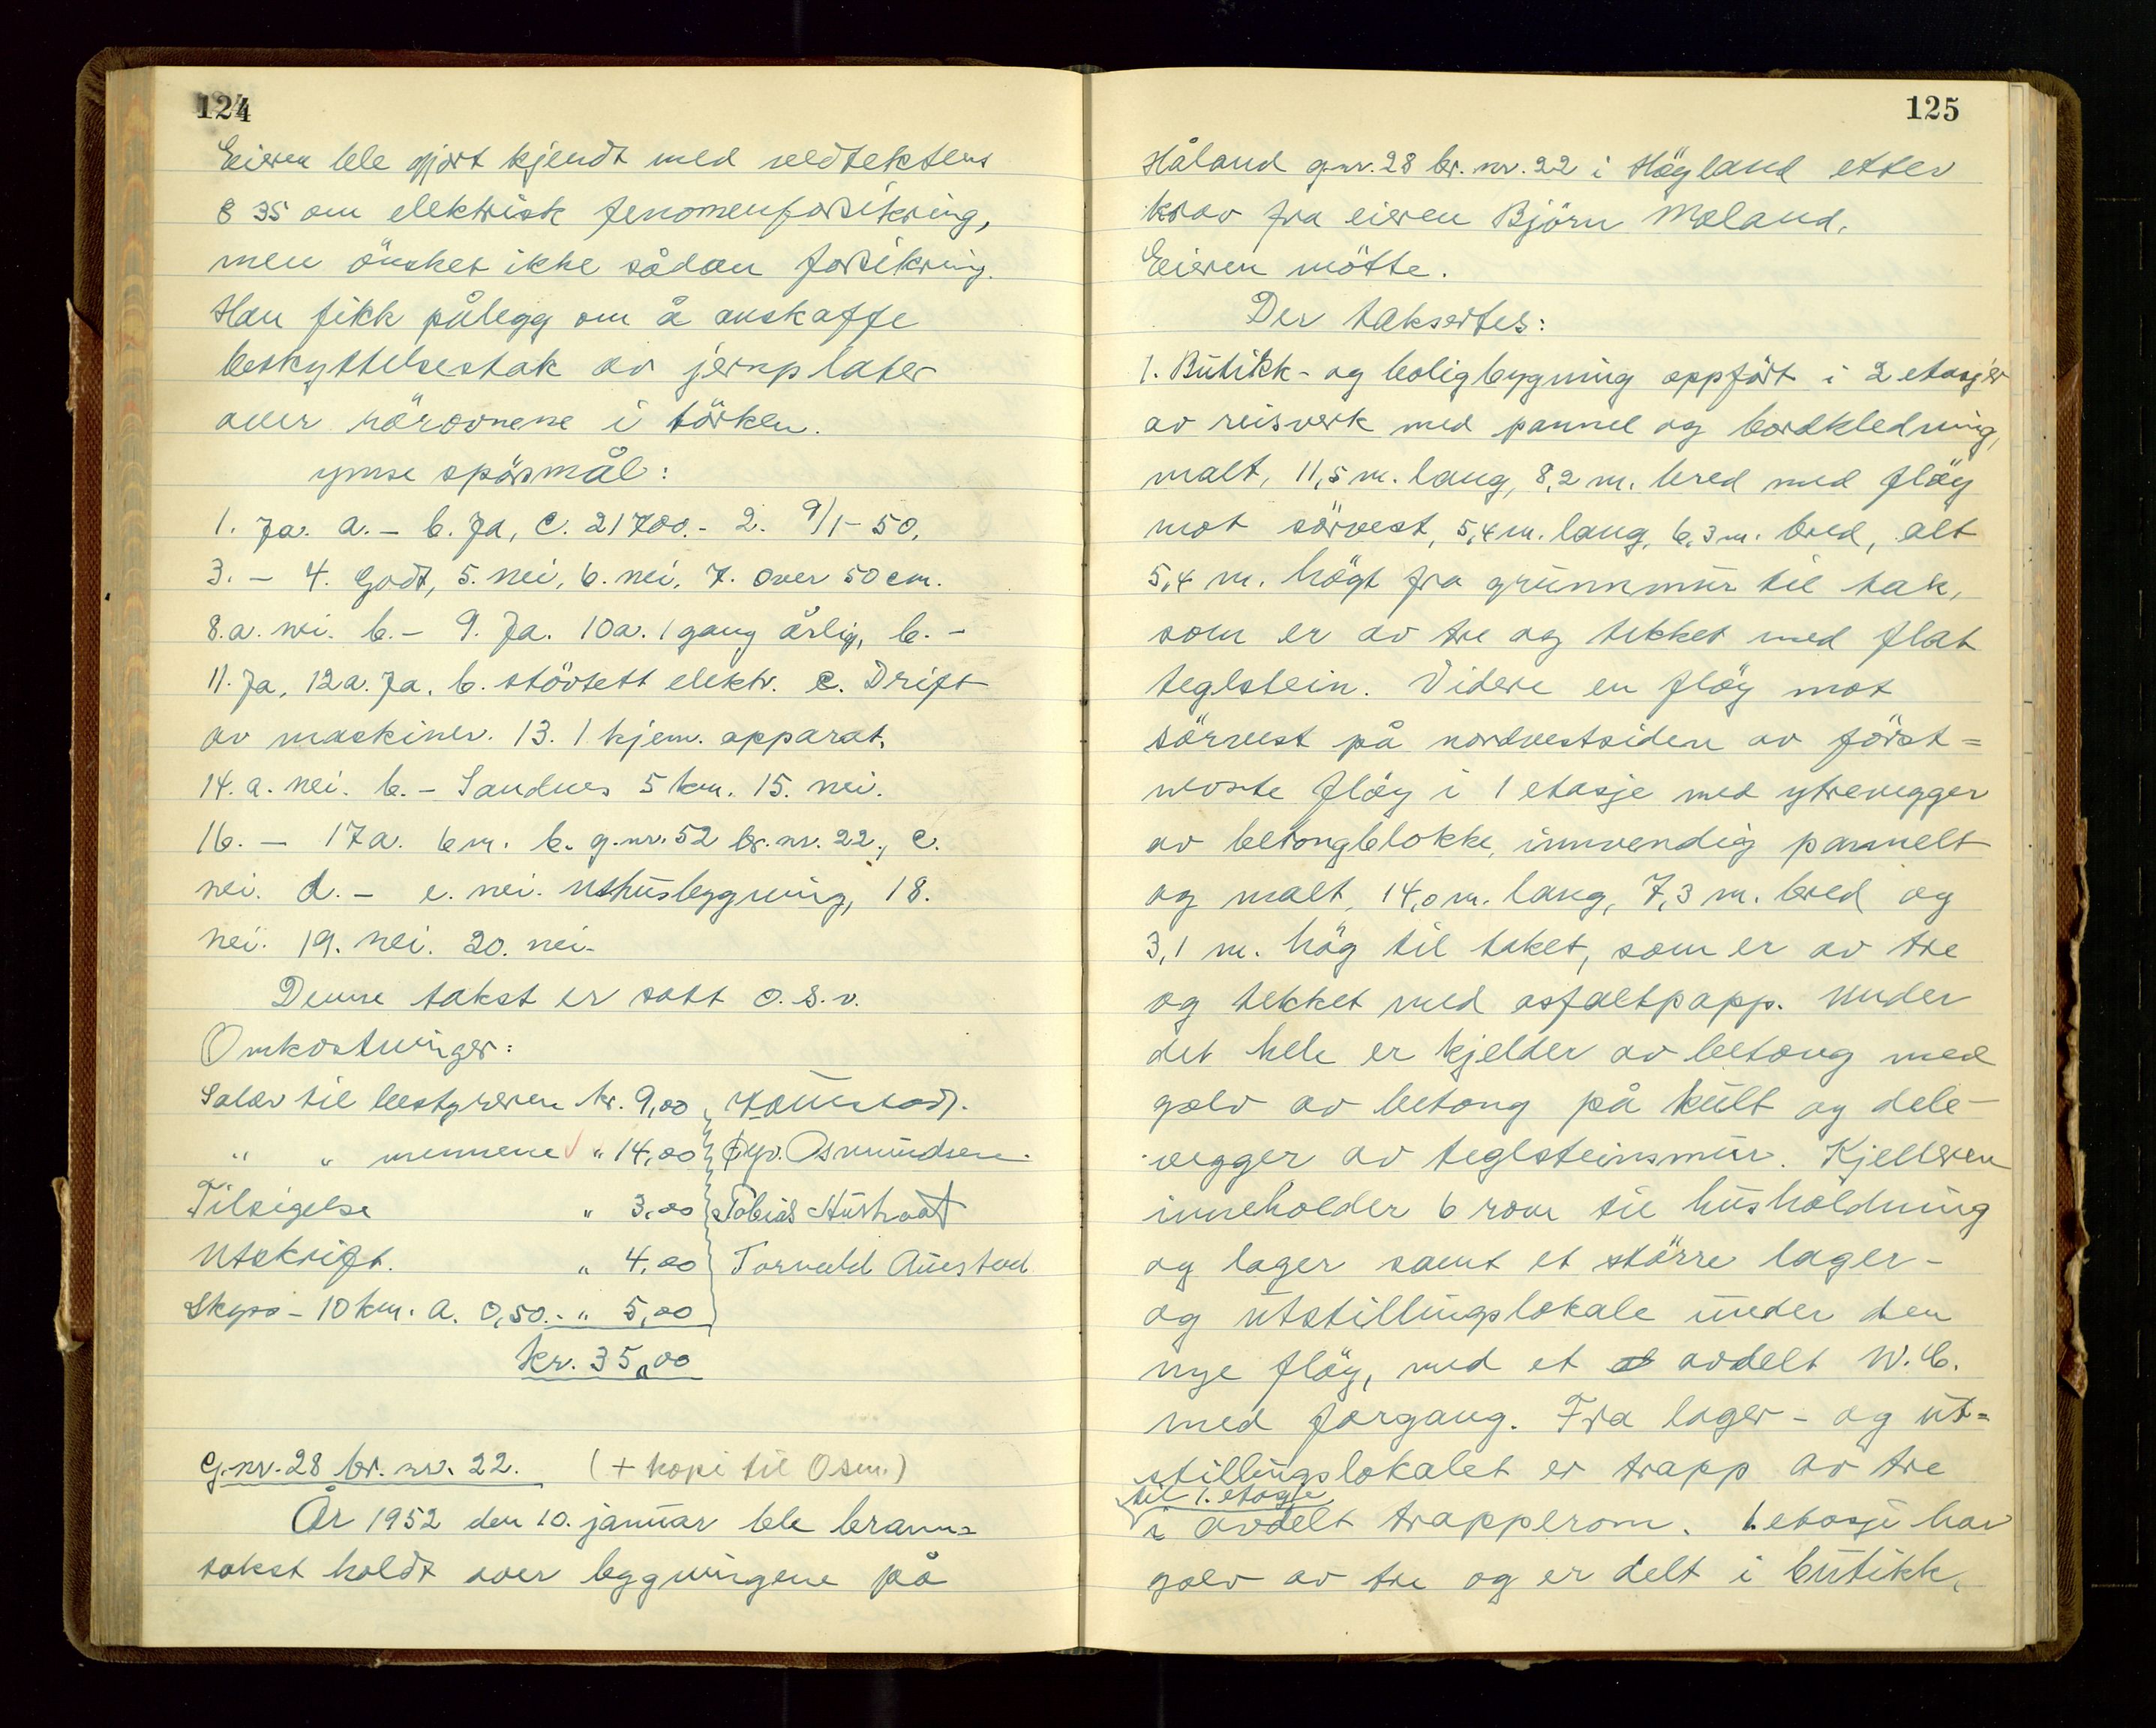 124
Eieren ble gjort kjendt med vedtektens
§ 35 om elektrisk fenomenforsikring,
men önsket ikke sådan forsikring.
Han fikk pålegg om å anskaffe
beskyttelsestak av jernplater
over rörovnene i törken.
ymse spörsmål:
1. Ja. a. – b. Ja, c. 21700.- 2. 9/1-50.
3. – 4. Godt, 5. nei, 6. nei, 7. over 50 cm.
8.a. nei. b. – 9. Ja. 10a. 1 gang årlig, b. –
11. Ja, 12a. Ja. b. stövtett elektr. c. Drift
av maskiner. 13. 1 kjem. apparat.
14. a. nei. b. – Sandnes 5 km. 15. nei.
16. – 17a. 6 m. b. g.nr. 52 br.nr. 22., c.
nei. d. – e. nei. uthusbygning, 18.
nei. 19. nei. 20. nei.
Denne takst er satt o.s.v.
Omkostninger:
Salær til bestyreren kr. 9,00
" " mennene " 14,00 Osmundsen.
Tilsigelse " 3,00 Tobias
Utskrift. " 4,00 Torvald Austad
Skyss – 10 km. a. 0,50.- " 5,00
kr. 35,00
G.nr. 28 br. nr. 22. (+ kopi til Osm.)
År 1952 den 10. januar ble brann=
takst holdt over bygningene på
125
Håland g.nr. 28 br. nr. 22 i Högland etter
krav fra eieren Björn Moland.
Eieren mötte.
Der taksertes:
1. Butikk- og boligbygning oppfört i 2 etasjer
av reisverk med pannel og bordkledning,
malt, 11,5 m. lang, 8,2 m. bred med flöy
mot sörvest, 5,4 m. lang, 6,3 m. bred, alt
5,4 m. högt fra grunnmur til tak,
som er av tre og tekket med flat
teglstein. Videre en flöy mot
sörvest på nordvestsiden av först=
nevnte flöy i 1 etasje med yttrevegger
av betongblokke, innvendig pannelt
og malt, 14,0 m. lang, 7,3 m. bred og
3,1 m. hög til taket, som er av tre
og tekket med asfaltpapp. Under
det hele er kjelder av betong med
golv av betong på kult og dele-
vegger av teglsteinsmur. Kjelleren
inneholder 6 rom til husholdning
og lager samt et större lager-
og utstillingslokale under den
nye flöy, med et avdelt W.C.
med forgang. Fra lager- og ut=
stillingslokalet er trapp av tre
til 1. etasje
i avdelt trapperom. 1. etasje har
golv av tre og er delt i butikk,